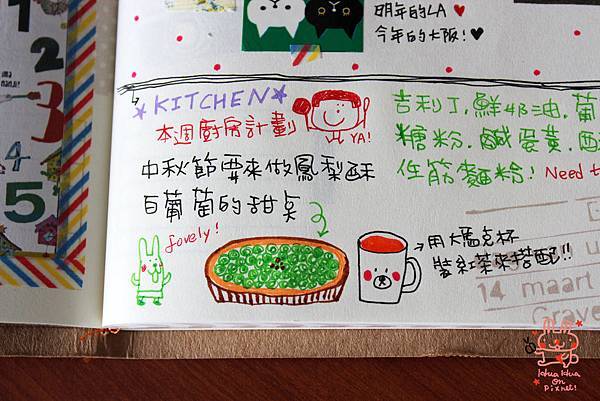 明年的LA ♥
今年的大阪!♥
★KITCHEN★
本週廚房計劃
YA!
中秋節要來做鳳梨酥
白葡萄的甜点
lovely!
吉利丁.鮮奶油.葡
糖粉.鹹蛋黃.
低筋麵粉! Need t
用大馬克杯
裝紅茶來搭配!!
14 maart
Grave
1
2
3
4
5
Hua Hua
on
Pixnet!